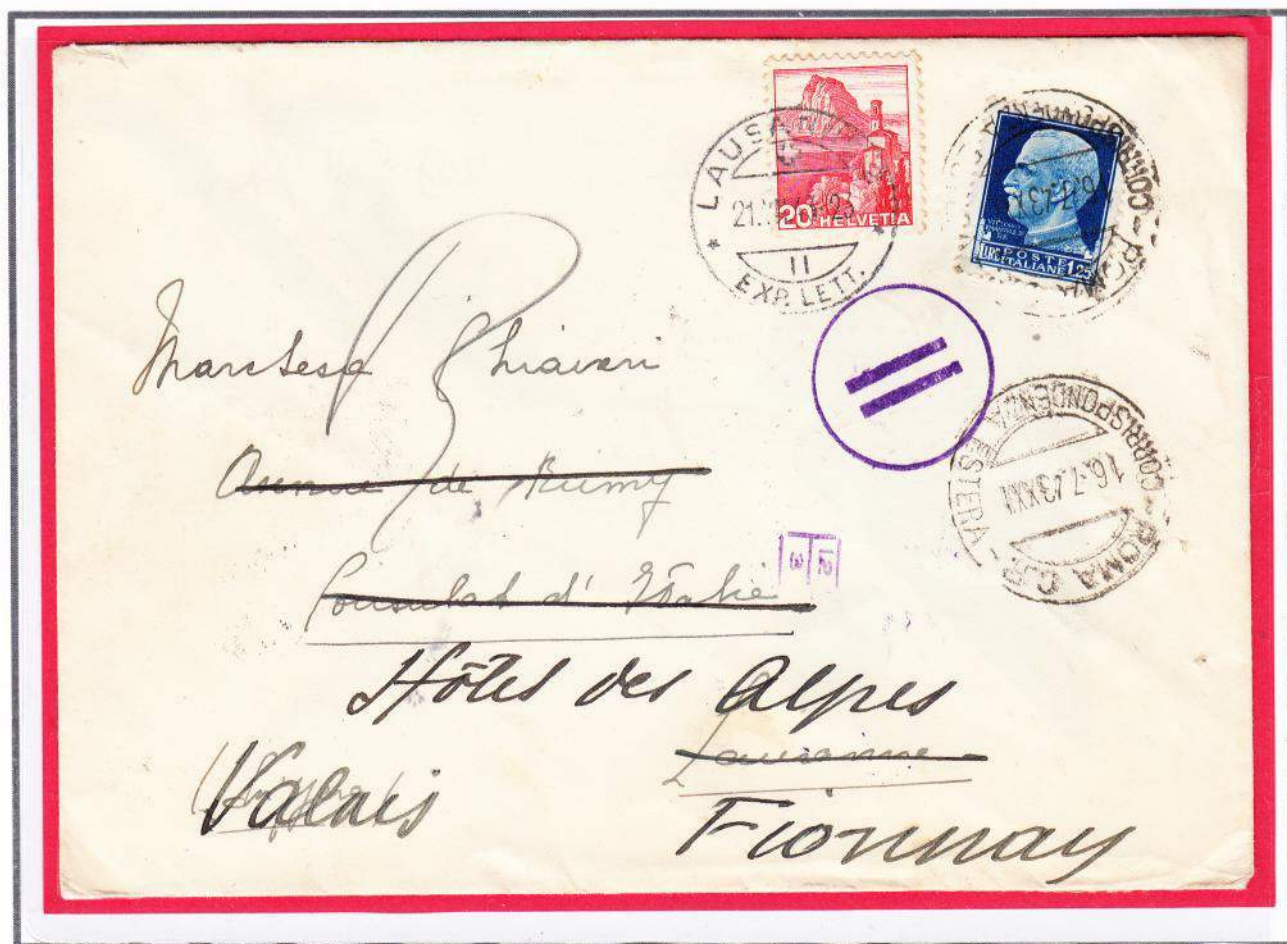 LAUSANNE
21.
EXP. LETT.
II
20 HELVETIA
POSTE ITALIANE
LIRE 1.25
ROMA C.P. - CORRISPONDENZA ESTERO -
16.7.43.XXI
Marchesa Chiavari
Avenue de Rumy
Consulat d'Italie
L2
3
Hôtel des Alpes
Lausanne
Valais
Fionnay